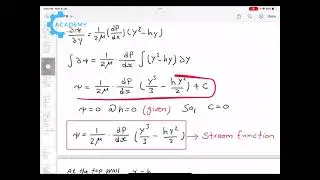 ACADEMY
∂Ψ/∂y = 1/2μ (dP/dx) (y² - hy)
∫∂Ψ = 1/2μ · dP/dx ∫(y² - hy) ∂y
Ψ = 1/2μ · dP/dx (y³/3 - hy²/2) + C
Ψ = 0 @ h = 0 (given) So, C = 0
Ψ = 1/2μ · dP/dx (y³/3 - hy²/2) → Stream function
At the top wall y = h